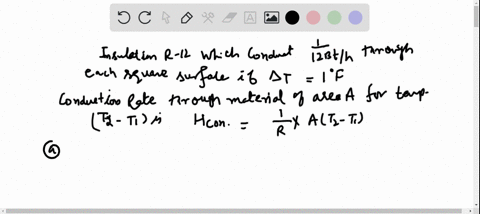 Insulation R-12 which conduct 1/12 Bt/h through
each square surface if ΔT = 1°F
Conduction Rate through material of area A for temp.
(T2 - T1) is Hcon. = 1/R × A(T2 - T1)
(a)